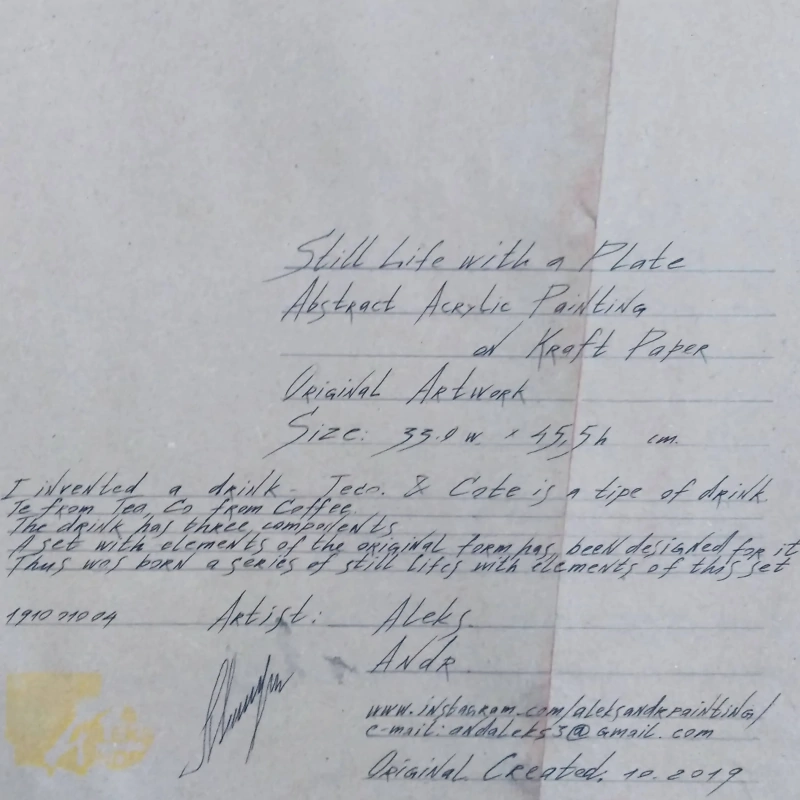 Still Life with a Plate
Abstract Acrylic Painting
on Kraft Paper
Original Artwork
Size: 33.0 w. x 45,5h cm.
I invented a drink - Teco. & Cote is a tipe of drink.
Te from Tea, Co from Coffee.
The drink has three components.
A set with elements of the original form has been designed for it
Thus was born a series of still lifes with elements of this set
Artist: Aleks
Andr
www.instagram.com/aleksandrpainting/
e-mail: andaleks3@gmail.com
Original Created. 10.2019